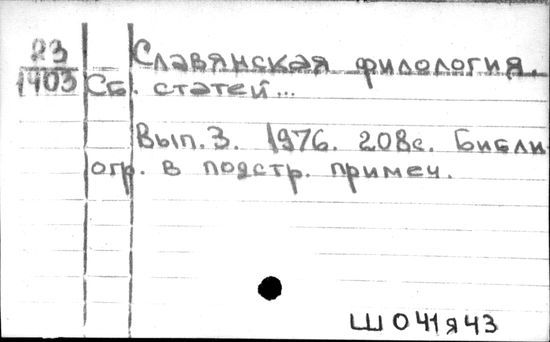 23
1403
Славянская филология.
Сб. статей...
Вып. 3. 1976. 208с. Библи
огр. в подстр. примеч.
Ш041я43